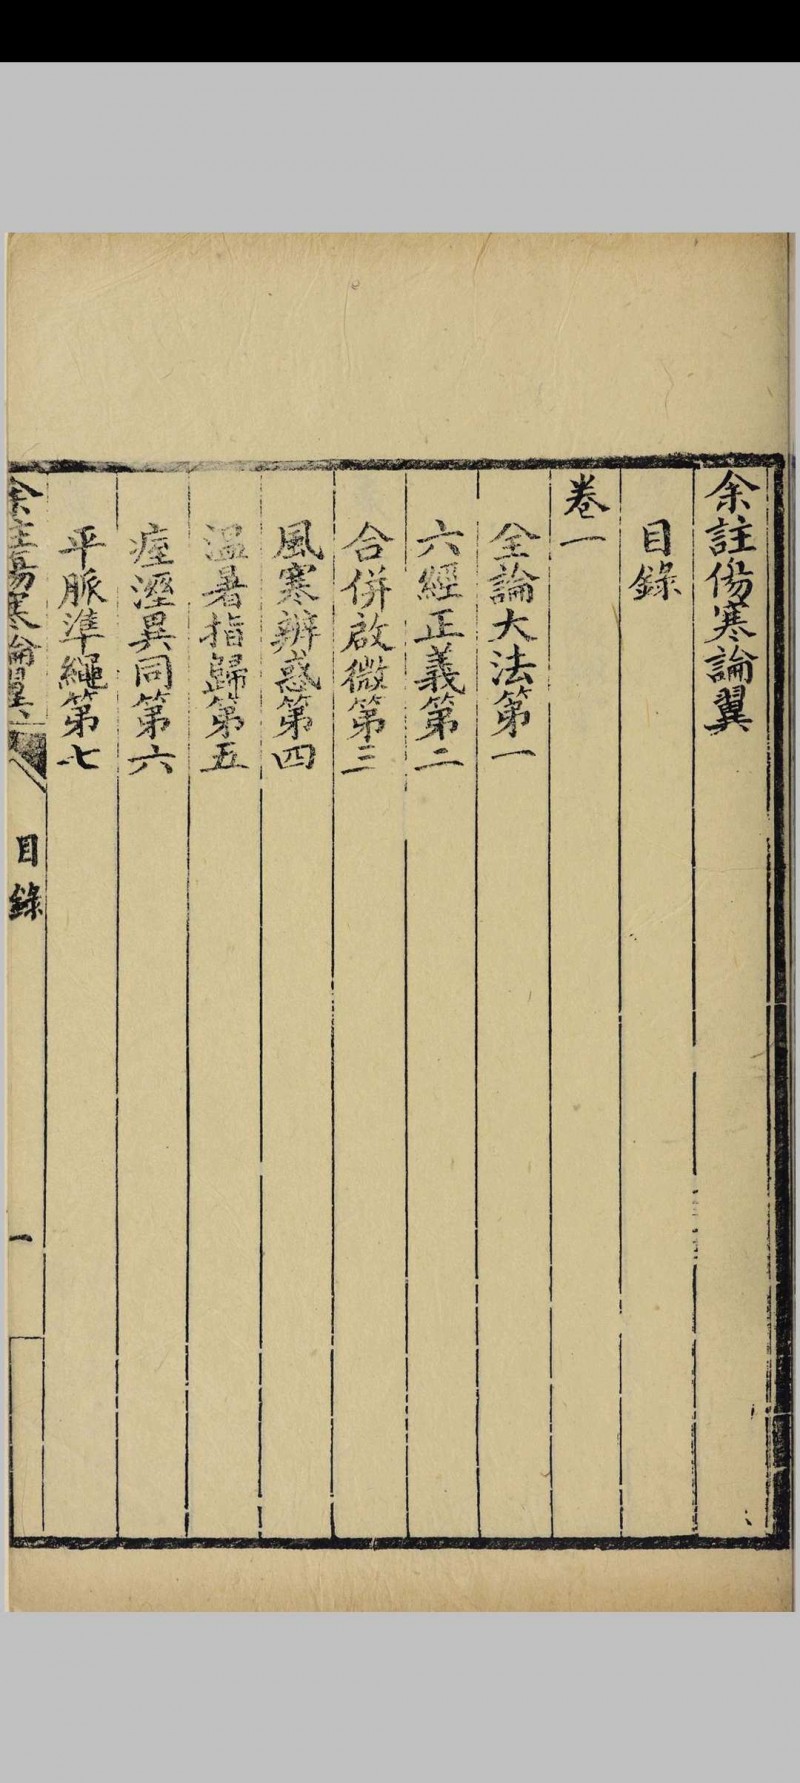 余註傷寒論翼
目錄
卷一
全論大法第一
六經正義第二
合併啟微第三
風寒辨惑第四
溫暑指歸第五
痙溼異同第六
平脈準繩第七
余註傷寒論翼
目錄
一